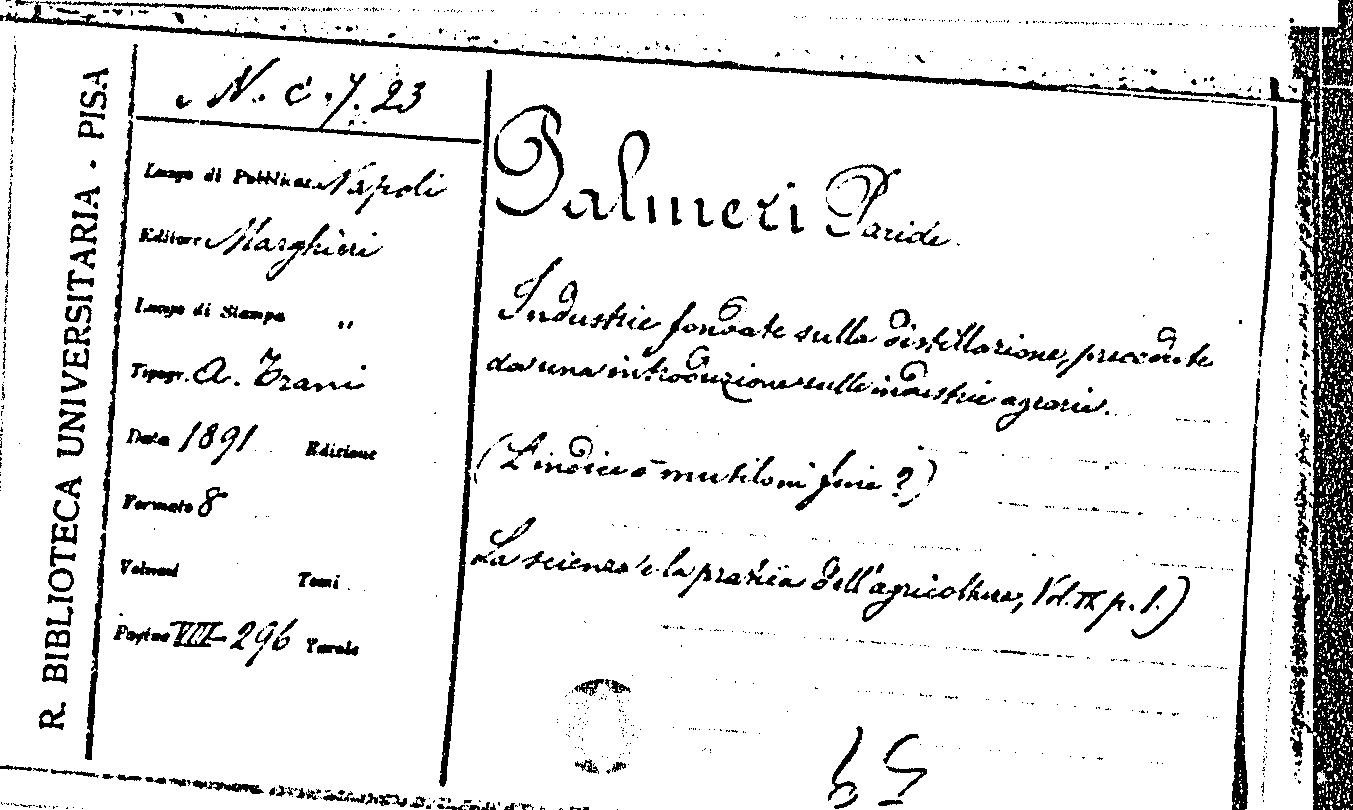 R. BIBLIOTECA UNIVERSITARIA - PISA
N. c. 7. 23
Luogo di Pubblicaz. Napoli
Editore Marghieri
Luogo di Stampa "
Tipogr. A. Trani
Data 1891 Edizione
Formato 8°
Volumi Tomi
Pagine VIII-296 Tavole
Palmeri Paride.
Industrie fondate sulla distillazione, precedute
da una introduzione sulle industrie agrarie.
(L'indice è mutilo in fine?)
La scienza e la pratica dell'agricoltura, Vol. IX p. I.)